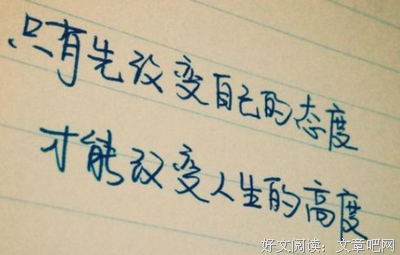 只有先改变自己的态度
才能改变人生的高度
好文阅读：文章吧网